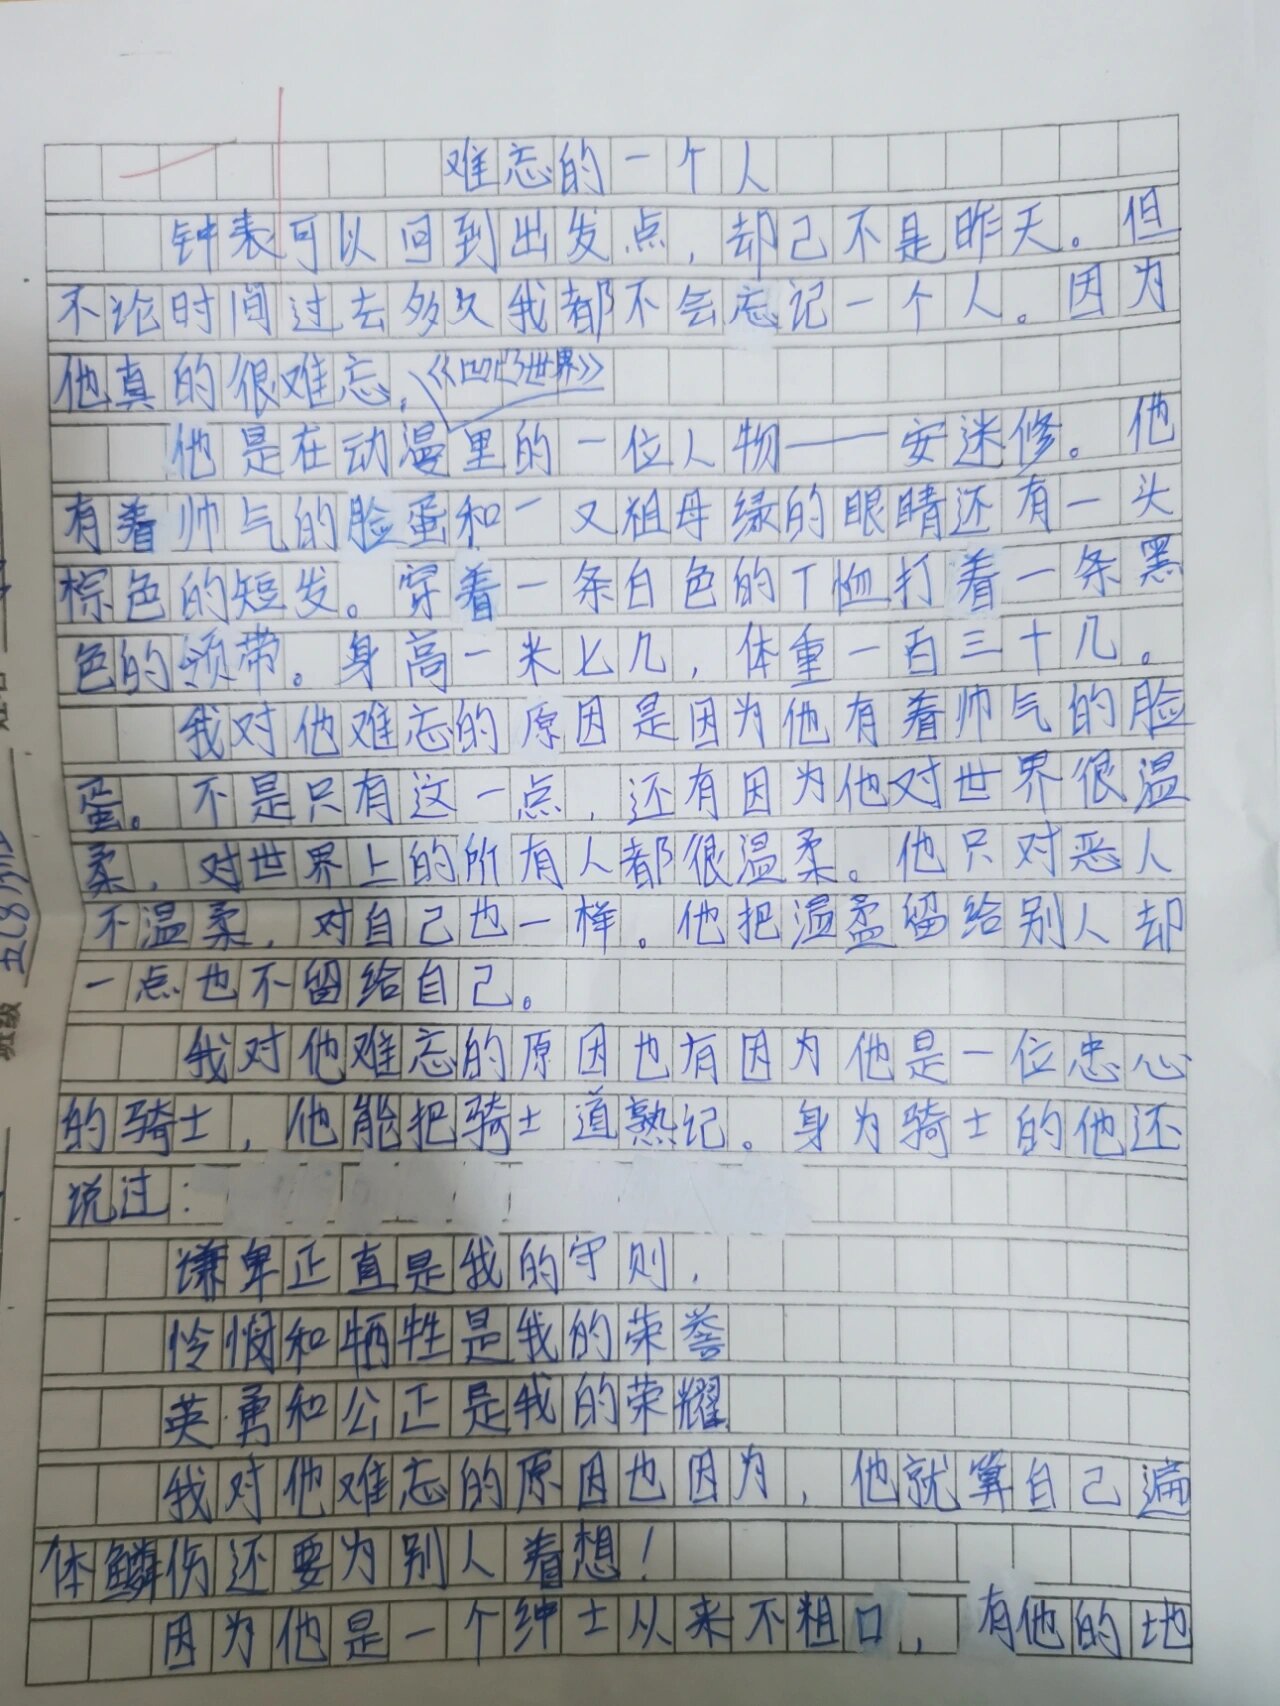 难忘的一个人
钟表可以回到出发点，却己不是昨天。但
不论时间过去多久我都不会忘记一个人。因为
他真的很难忘，
《凹凸世界》
他是在动漫里的一位人物——安迷修。他
有着帅气的脸蛋和一又祖母绿的眼睛还有一头
棕色的短发。穿着一条白色的T恤打着一条黑
色的领带。身高一米七几，体重一百三十几。
我对他难忘的原因是因为他有着帅气的脸
蛋。不是只有这一点，还有因为他对世界很温
柔，对世界上的所有人都很温柔。他只对恶人
不温柔，对自己也一样。他把温柔留给别人却
一点也不留给自己。
我对他难忘的原因也有因为他是一位忠心
的骑士，他能把骑士道熟记。身为骑士的他还
说过：
谦卑正直是我的守则，
怜悯和牺牲是我的荣誉
英勇和公正是我的荣耀
我对他难忘的原因也因为，他就算自己遍
体鳞伤还要为别人着想！
因为他是一个绅士从来不粗口，有他的地
班级 五(8)